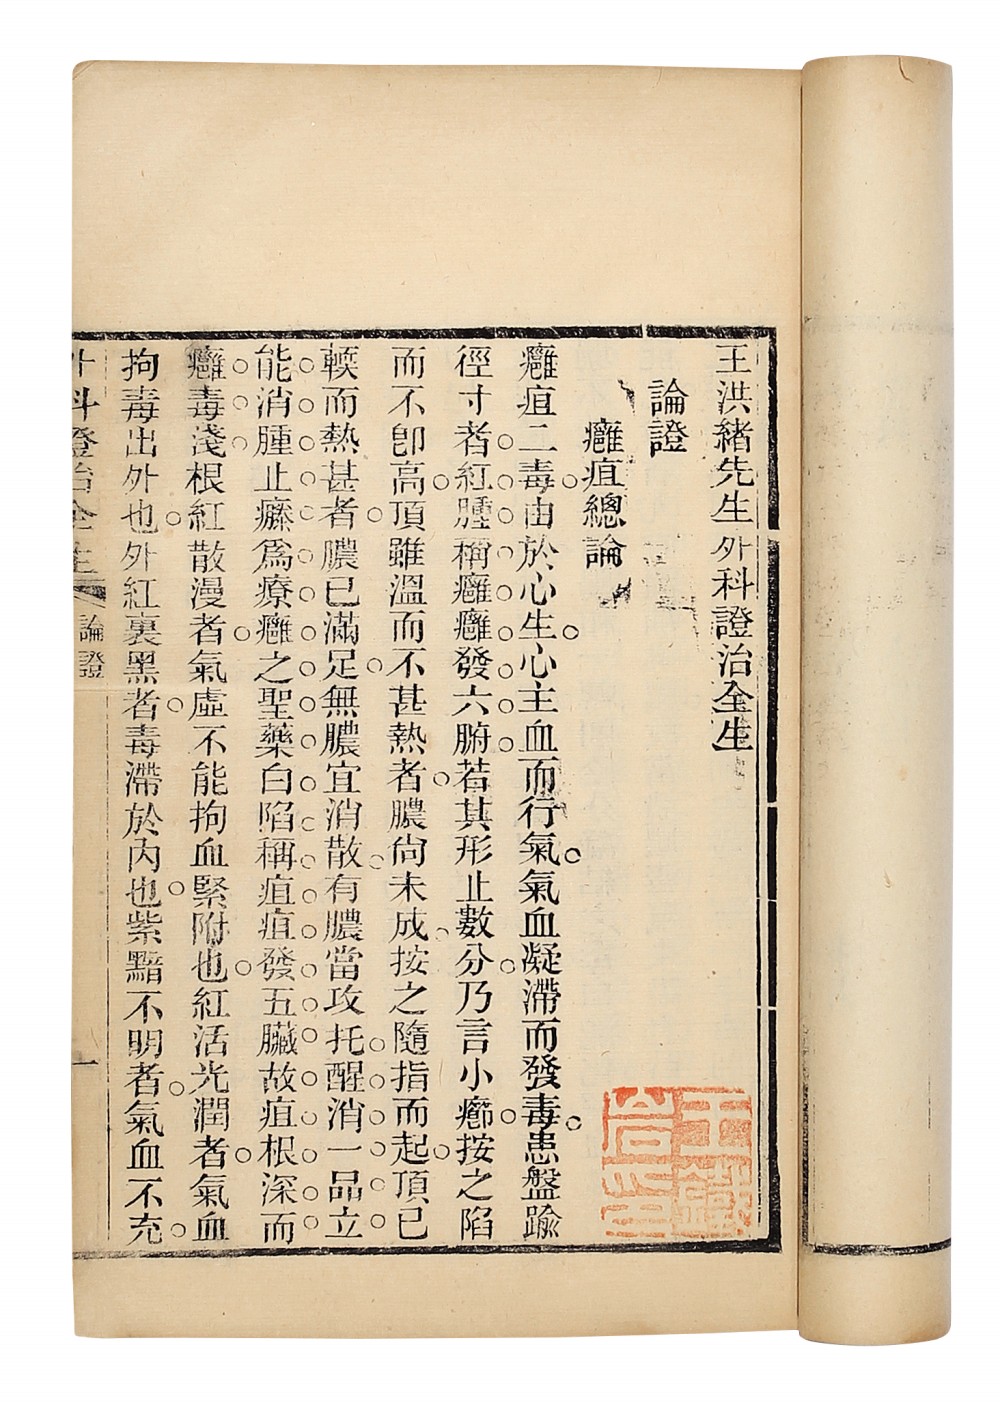 王洪緒先生外科證治全生
論證
癰疽總論
癰疽二毒由於心生心主血而行氣氣血凝滯而發毒患盤踰
徑寸者紅腫稱癰癰發六腑若其形止數分乃言小癤按之陷
而不卽高頂雖溫而不甚熱者膿尙未成按之隨指而起頂已
輭而熱甚者膿已滿足無膿宜消散有膿當攻托醒消一品立
能消腫止癢爲療癰之聖藥白陷稱疽疽發五臟故疽根深而
癰毒淺根紅散漫者氣虛不能拘血緊附也紅活光潤者氣血
拘毒出外也外紅裏黑者毒滯於內也紫黯不明者氣血不充
外科證治全生 論證 一